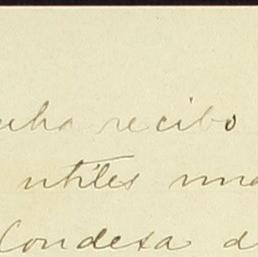 recibo
utiles
Condesa d